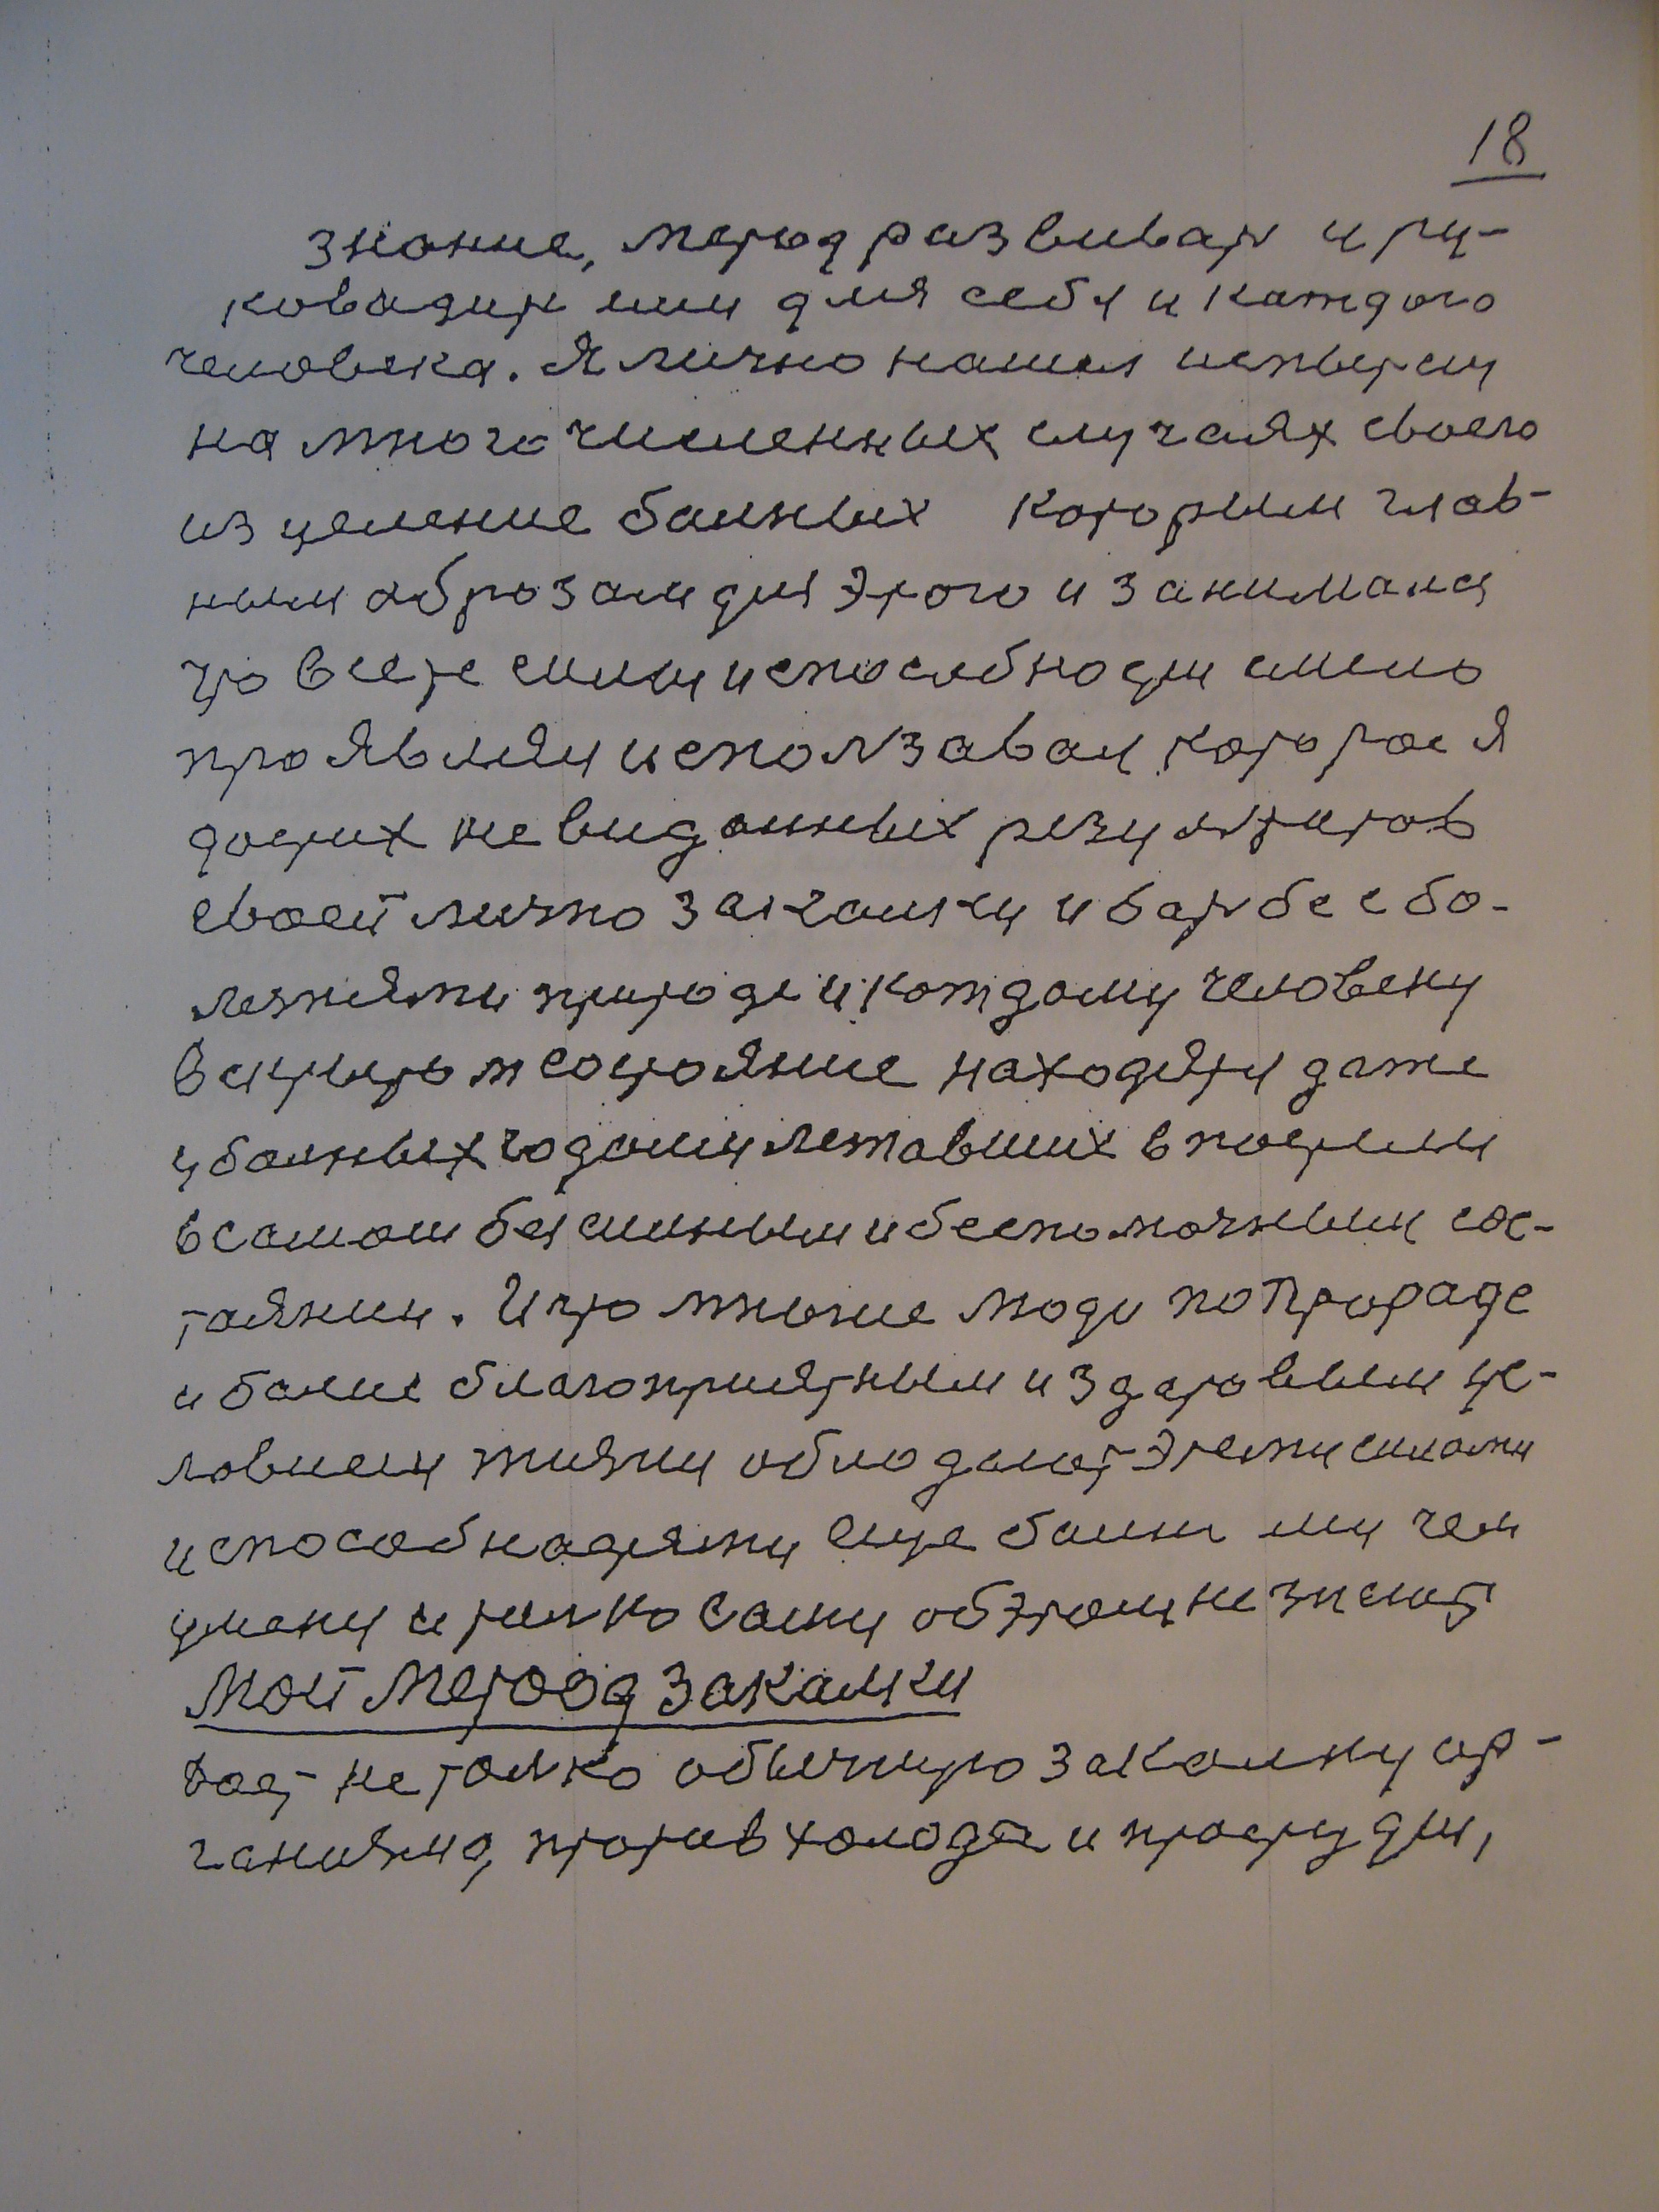 18
знание, метод развиват и ру-
ковадит ими для себя и каждого
человека. Я лично нашел испытую
на многочисленных случаях своего
изцеление балных которым глав-
ным образам для этого и занимался
что все те силы и способности смело
проявляя исползавал которое я
достих невиданных результатов
своей лично закалки и барбе с бо-
лезнями природе и каждому человеку
в скрытом состояние находятся даже
у балных годами лежавших в постели
в самом бессилным и беспомочным сос-
таянии. И что многие люди по Прираде
и более благоприятным и здаровым ус-
ловием жизни обладают этеми силами
и способнастями еще балшими чем
у меня и только сами об этом не знают
Мой Метоод закалки
дает не только обычную закалку ор-
ганизма, против холода и простуды,